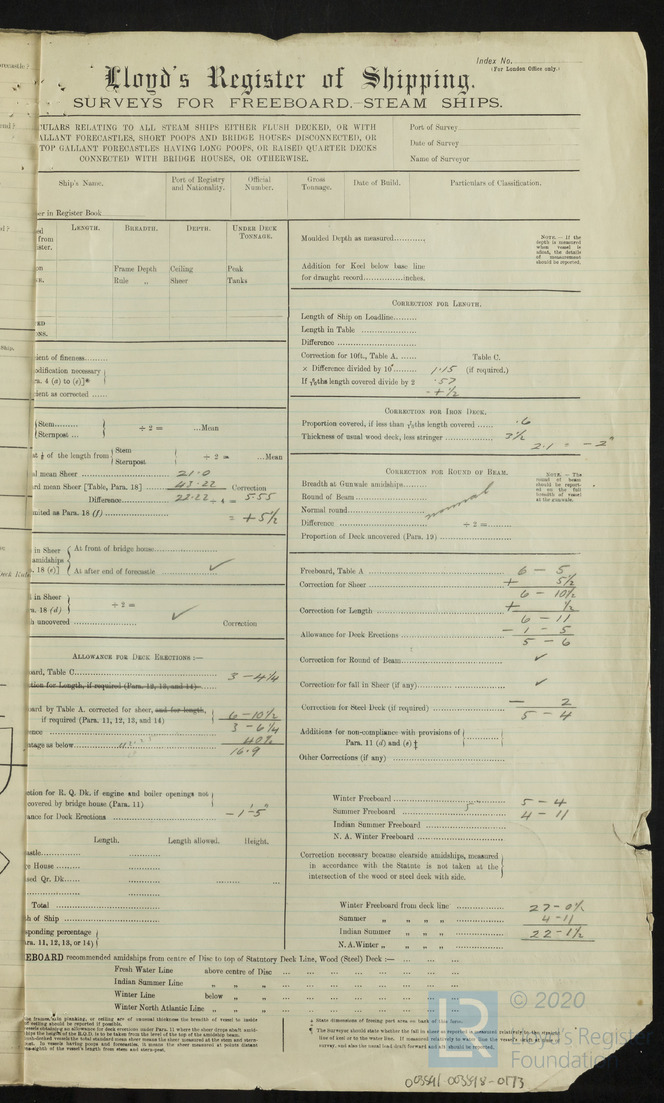 Index No.
(For London Office only.)
Lloyd's Register of Shipping.
SURVEYS FOR FREEBOARD.—STEAM SHIPS.
CULARS RELATING TO ALL STEAM SHIPS EITHER FLUSH DECKED, OR WITH
ALLANT FORECASTLES, SHORT POOPS AND BRIDGE HOUSES DISCONNECTED, OR
TOP GALLANT FORECASTLES HAVING LONG POOPS, OR RAISED QUARTER DECKS
CONNECTED WITH BRIDGE HOUSES, OR OTHERWISE.
Port of Survey
Date of Survey
Name of Surveyor
Ship's Name.
Port of Registry and Nationality.
Official Number.
Gross Tonnage.
Date of Build.
Particulars of Classification.
er in Register Book
LENGTH. BREADTH. DEPTH. UNDER DECK TONNAGE.
from
ister.
Frame Depth Ceiling Peak
Rule „ Sheer Tanks
ient of fineness.........
odification necessary
ra. 4 (a) to (e)]*
cient as corrected ......
Stem............
Sternpost ...
÷ 2 = ...Mean
at ⅛ of the length from Stem
Sternpost
÷ 2 = ...Mean
l mean Sheer ........................ 21.0
rd mean Sheer [Table, Para. 18] 43.22 Correction
Difference............ 22.22 ÷ 4 = 5.55
mited as Para. 18 (f) = + 5½
in Sheer At front of bridge house..............
amidships
. 18 (e)] At after end of forecastle ✓
t in Sheer
a. 18 (d) ÷ 2 =
h uncovered ✓ Correction
ALLOWANCE FOR DECK ERECTIONS :—
oard, Table C........................ 3 - 4¼
tion for Length, if required (Para. 12, 13, and 14)
oard by Table A. corrected for sheer, and for length,
if required (Para. 11, 12, 13, and 14) 6 - 10½
ence 3 - 6¼
tage as below 40%
16.9
etion for R. Q. Dk. if engine and boiler openings not
covered by bridge house (Para. 11)
ance for Deck Erections - 1' - 5"
Length. Length allowed. Height.
astle
e House
sed Qr. Dk.
Total
h of Ship
sponding percentage
ra. 11, 12, 13, or 14)
Moulded Depth as measured
NOTE.—If the depth is measured when vessel is afloat, the details of measurement should be reported.
Addition for Keel below base line
for draught record...............inches.
CORRECTION FOR LENGTH.
Length of Ship on Loadline
Length in Table
Difference
Correction for 10ft., Table A. ...... Table C.
× Difference divided by 10 1.15 (if required.)
If 6/10ths length covered divide by 2 .57
+ ½
CORRECTION FOR IRON DECK.
Proportion covered, if less than 7/10ths length covered .6
Thickness of usual wood deck, less stringer 3½
2.1 = - 2"
CORRECTION FOR ROUND OF BEAM.
Breadth at Gunwale amidships
Round of Beam
Normal round normal
Difference ÷ 2 =
Proportion of Deck uncovered (Para. 19)
NOTE.—The round of beam should be reported on the full breadth of vessel at the gunwale.
Freeboard, Table A 6 - 5
Correction for Sheer + 5½
6 - 10½
Correction for Length + ½
6 - 11
Allowance for Deck Erections - 1 - 5
5 - 6
Correction for Round of Beam ✓
Correction for fall in Sheer (if any) ✓
Correction for Steel Deck (if required) - 2
5 - 4
Additions for non-compliance with provisions of
Para. 11 (d) and (e) ‡
Other Corrections (if any)
Winter Freeboard 5 - 4
Summer Freeboard 5" 4 - 11
Indian Summer Freeboard
N. A. Winter Freeboard
Correction necessary because clearside amidships, measured
in accordance with the Statute is not taken at the
intersection of the wood or steel deck with side.
Winter Freeboard from deck line 27 - 0½
Summer „ „ „ „ 4 - 11
Indian Summer „ „ „ 22 - 1½
N. A. Winter „ „ „ „
EBOARD recommended amidships from centre of Disc to top of Statutory Deck Line, Wood (Steel) Deck :—
Fresh Water Line above centre of Disc
Indian Summer Line „ „ „
Winter Line below „ „
Winter North Atlantic Line „ „ „
‡ State dimensions of freeing port area on back of this form.
¶ The Surveyor should state whether the fall in sheer as reported is measured relatively to the straight
line of keel or to the water line. If measured relatively to water line the vessel's draft at time of
survey, and also the usual load draft forward and aft should be reported.
LR
© 2020
Lloyd's Register
Foundation
003591 003598-0173